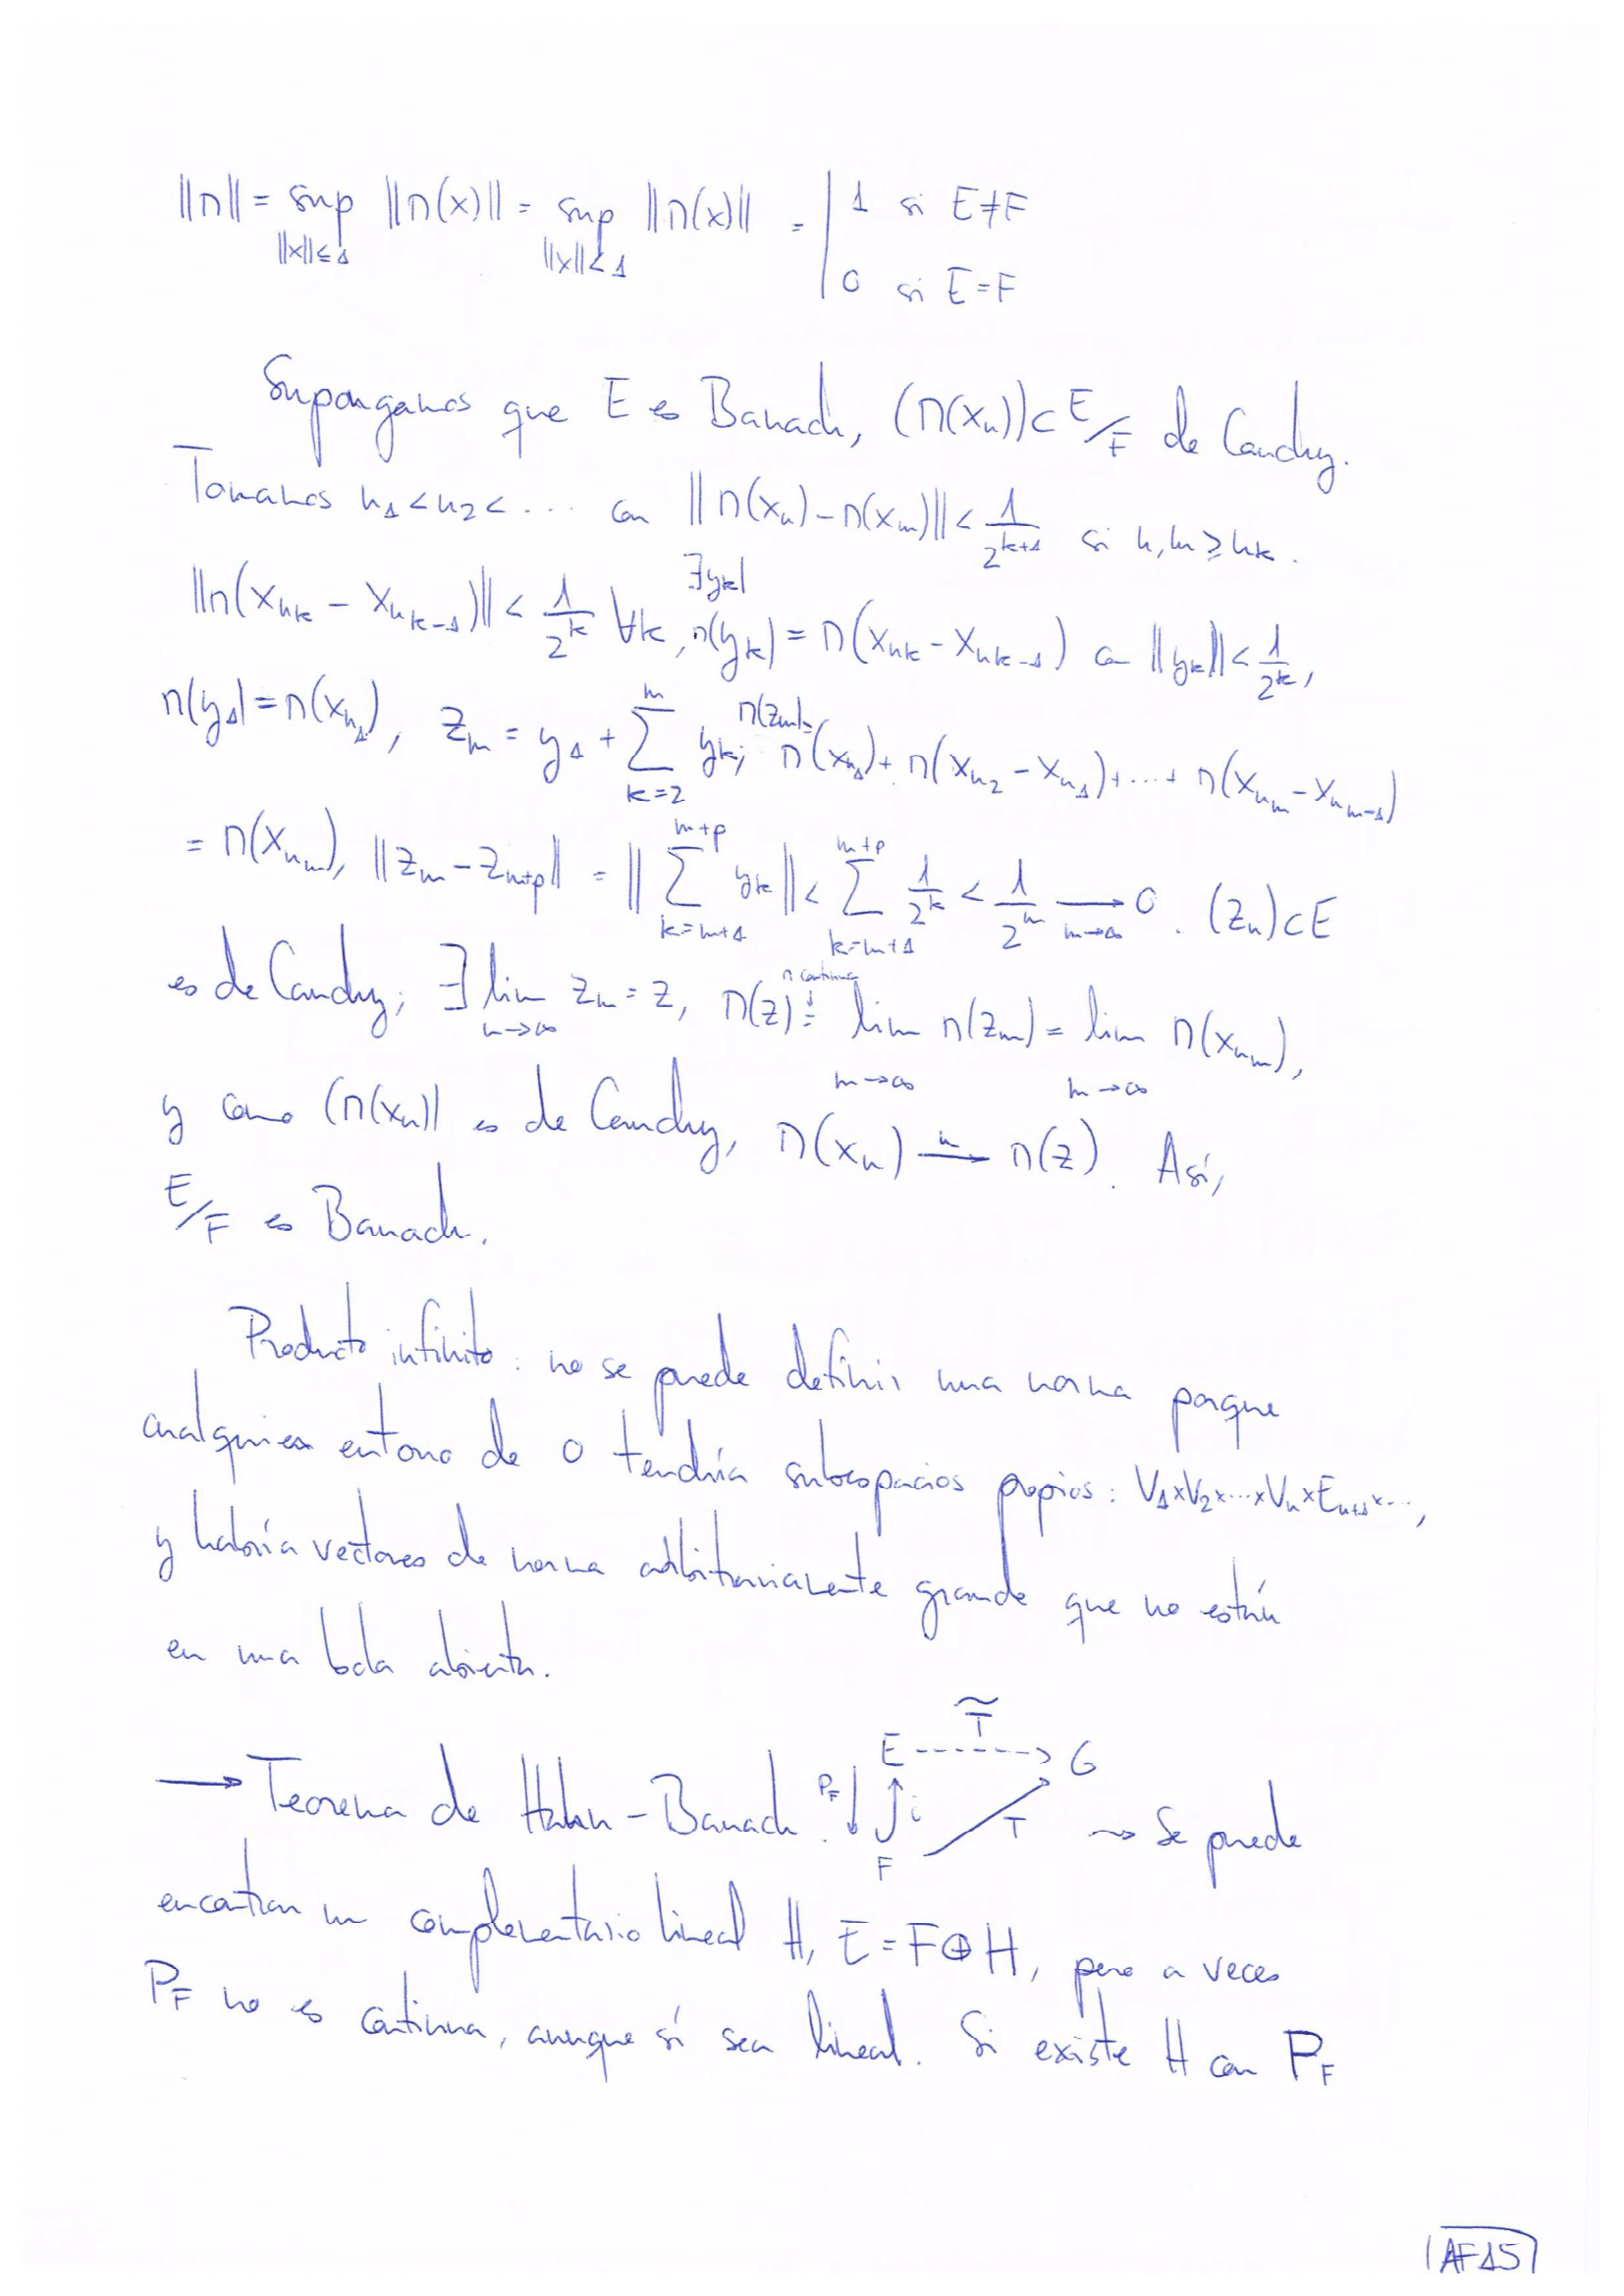 ‖Π‖ = sup_{‖x‖≤1} ‖Π(x)‖ = sup_{‖x‖<1} ‖Π(x)‖ = | 1 si E≠F
0 si E=F
Supongamos que E es Banach, (Π(x_n)) ⊂ E/F de Cauchy.
Tomamos n_1 < n_2 < ... con ‖Π(x_n) − Π(x_m)‖ < 1/2^{k+1} si n, m ≥ n_k.
‖Π(x_{n_k} − x_{n_{k-1}})‖ < 1/2^k ∀k, ∃y_k | Π(y_k) = Π(x_{n_k} − x_{n_{k-1}}) con ‖y_k‖ < 1/2^k,
Π(y_1) = Π(x_{n_1}), z_m = y_1 + ∑_{k=2}^{m} y_k; Π(z_m) = Π(x_{n_1}) + Π(x_{n_2} − x_{n_1}) + ... + Π(x_{n_m} − x_{n_{m-1}})
= Π(x_{n_m}), ‖z_m − z_{m+p}‖ = ‖∑_{k=m+1}^{m+p} y_k‖ < ∑_{k=m+1}^{m+p} 1/2^k < 1/2^m →_{m→∞} 0. (z_n) ⊂ E
es de Cauchy; ∃ lim_{n→∞} z_n = z, Π(z) =^{Π continua ↓} lim_{m→∞} Π(z_m) = lim_{m→∞} Π(x_{n_m}),
y como (Π(x_n)) es de Cauchy, Π(x_n) →^n Π(z). Así,
E/F es Banach.
Producto infinito: no se puede definir una norma porque
cualquier entorno de 0 tendría subespacios propios: V_1×V_2×...×V_n×E_{n+1}×...,
y habría vectores de norma arbitrariamente grande que no están
en una bola abierta.
→ Teorema de Hahn-Banach: P_F ↓ E ⇢ G T̃ i F T ⇝ Se puede
encontrar un complementario lineal H, E = F⊕H, pero a veces
P_F no es continua, aunque sí sea lineal. Si existe H con P_F
AF15